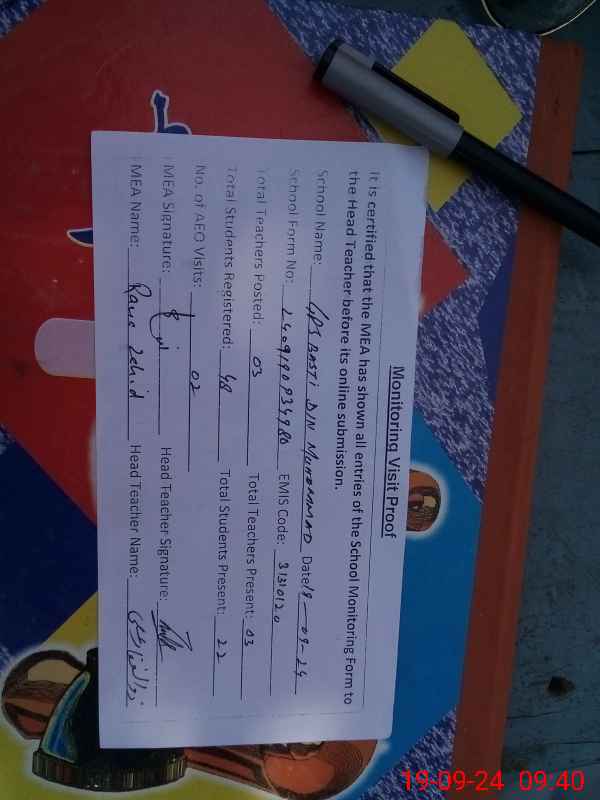 Monitoring Visit Proof
It is certified that the MEA has shown all entries of the School Monitoring Form to
the Head Teacher before its online submission.
School Name: GPS BASTI DIN MUHAMMAD Date: 19-09-24
School Form No: EMIS Code: 31310120
Total Teachers Posted: 03 Total Teachers Present: 03
Total Students Registered: 48 Total Students Present: 22
No. of AEO Visits: 02
MEA Signature: Head Teacher Signature:
MEA Name: Rana Zahid Head Teacher Name: ذوالفقار علی
19-09-24 09:40